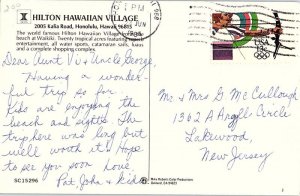 HILTON HAWAIIAN VILLAGE
2005 Kalia Road, Honolulu, Hawaii 96815
The world famous Hilton Hawaiian Village
beach at Waikiki. Twenty tropical acres featuring
entertainment, all water sports, catamaran sails, luaus
and a complete shopping complex.
PM
JUN
Dear Aunt Vi & Uncle George,
Having a wonder-
ful trip so far.
Kids are enjoying the
beach and sights. The
trip here was long but
well worth it. Hope
to see you soon Love
Pat, John & kids
SC15296
USA
Mr & Mrs G McCullough
1362 A Argyll Circle
Lakewood,
New Jersey